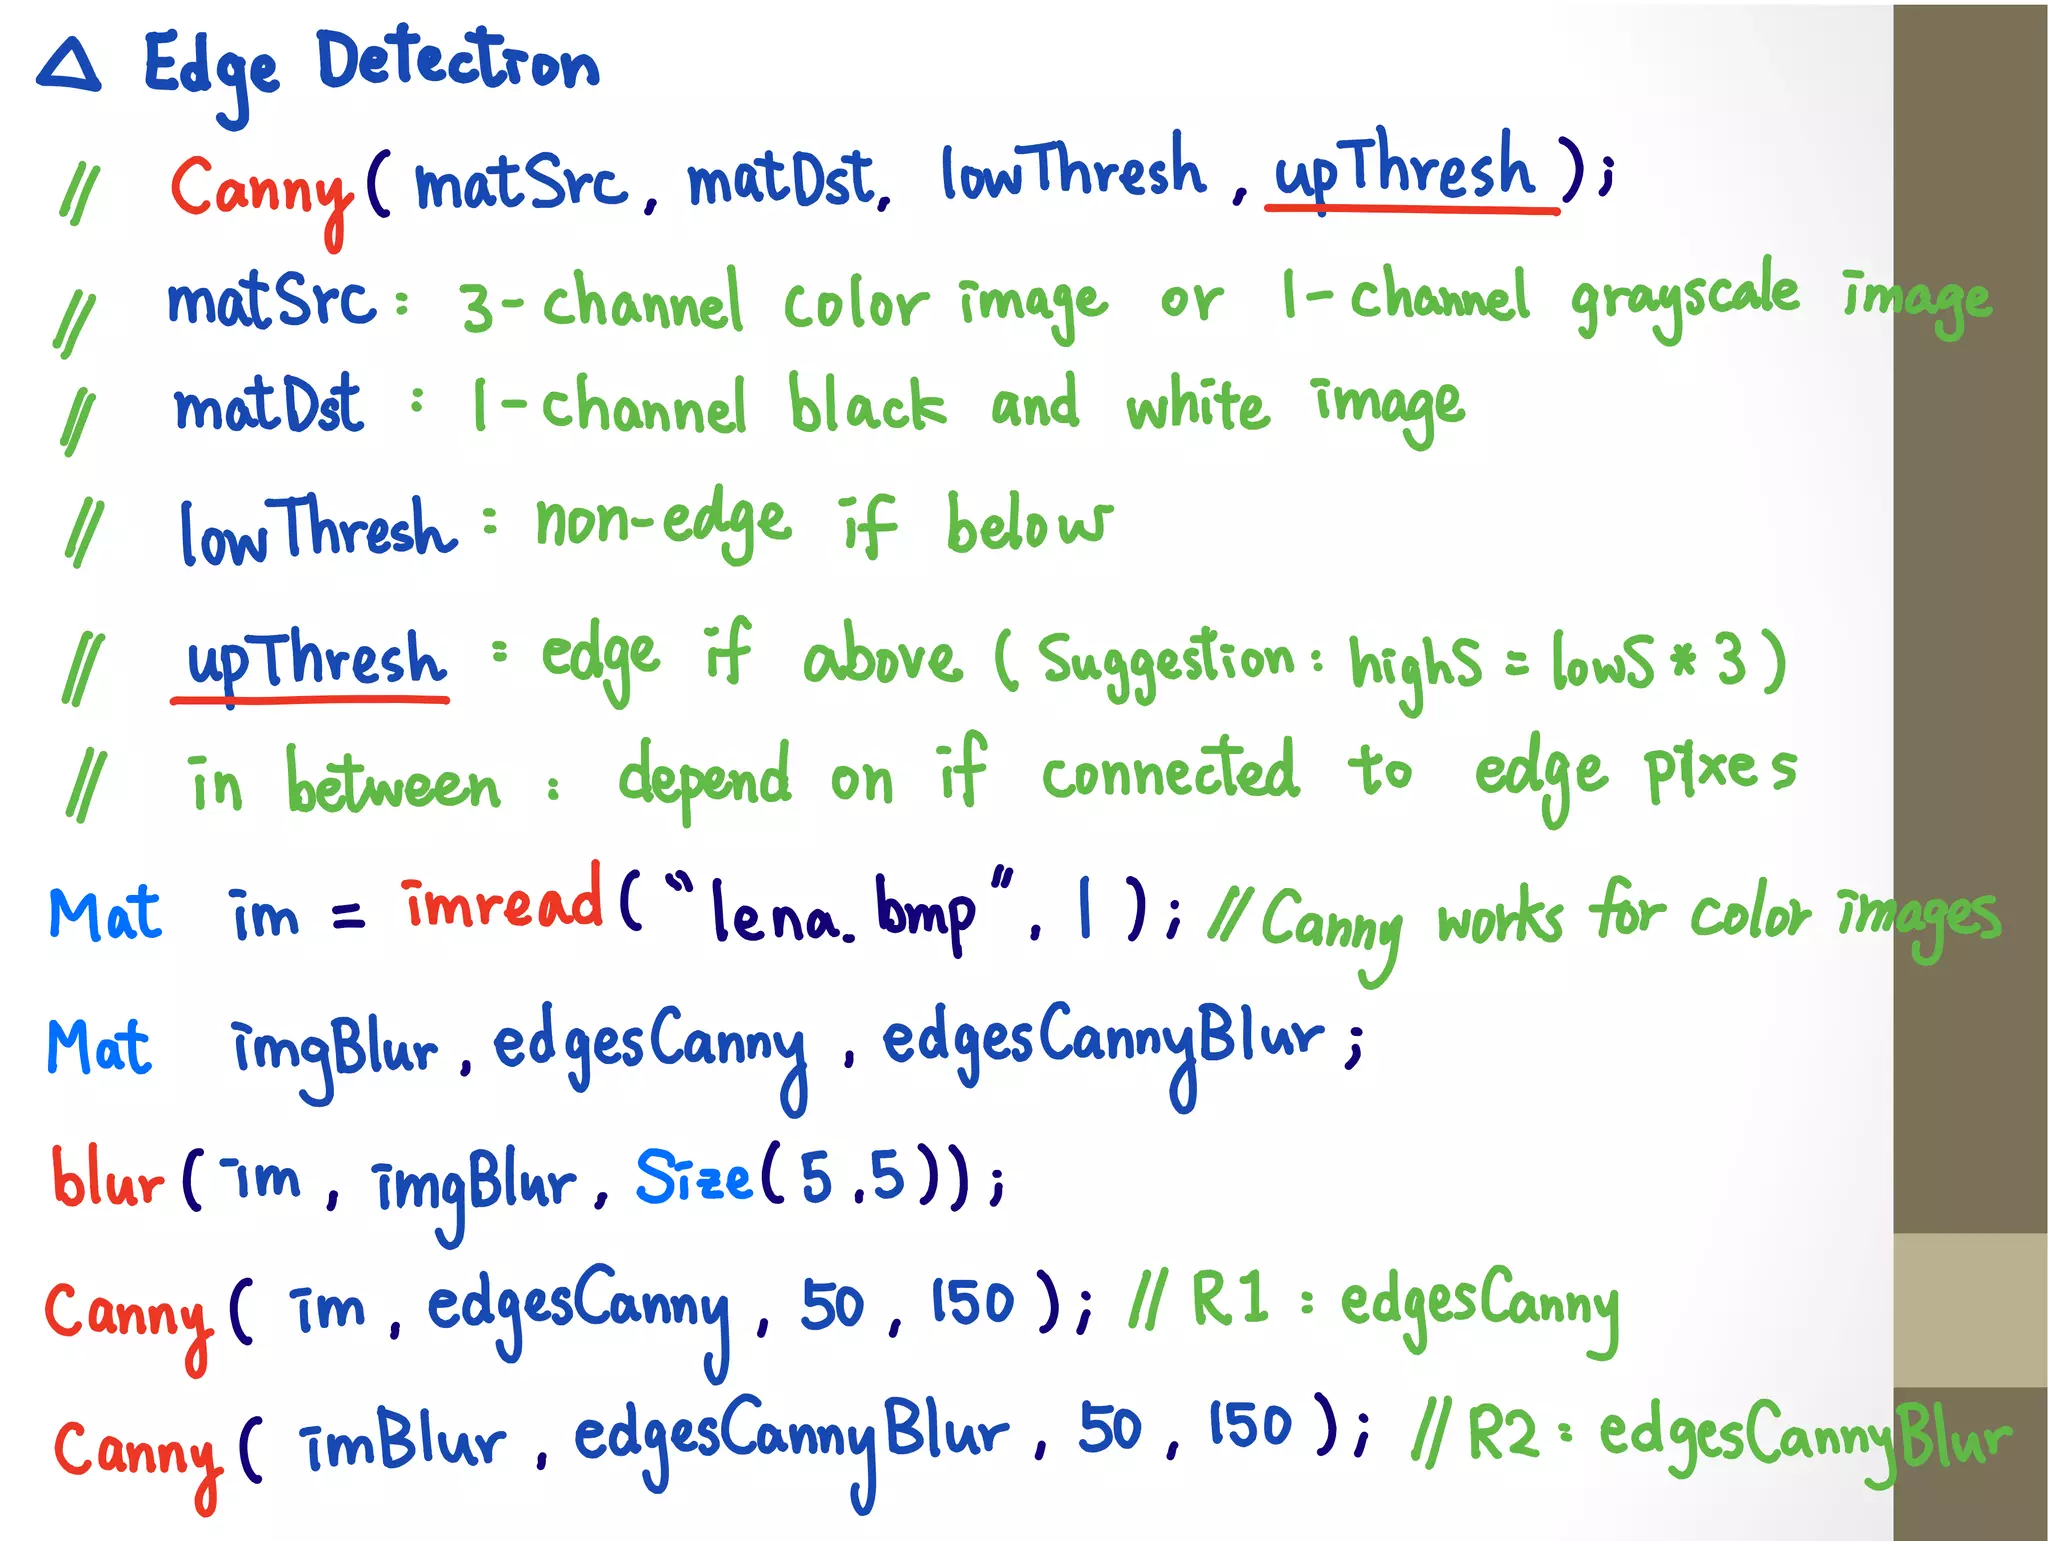 △ Edge Detection
// Canny( matSrc, matDst, lowThresh, upThresh );
// matSrc: 3-channel color image or 1-channel grayscale image
// matDst : 1-channel black and white image
// lowThresh : non-edge if below
// upThresh : edge if above ( Suggestion: highS = lowS * 3 )
// in between : depend on if connected to edge pixes
Mat im = imread( "lena.bmp", 1 ); // Canny works for color images
Mat imgBlur, edgesCanny, edgesCannyBlur ;
blur( im, imgBlur, Size( 5,5 ));
Canny( im, edgesCanny, 50, 150 ); // R1 : edgesCanny
Canny( imBlur, edgesCannyBlur, 50, 150 ); // R2 : edgesCannyBlur